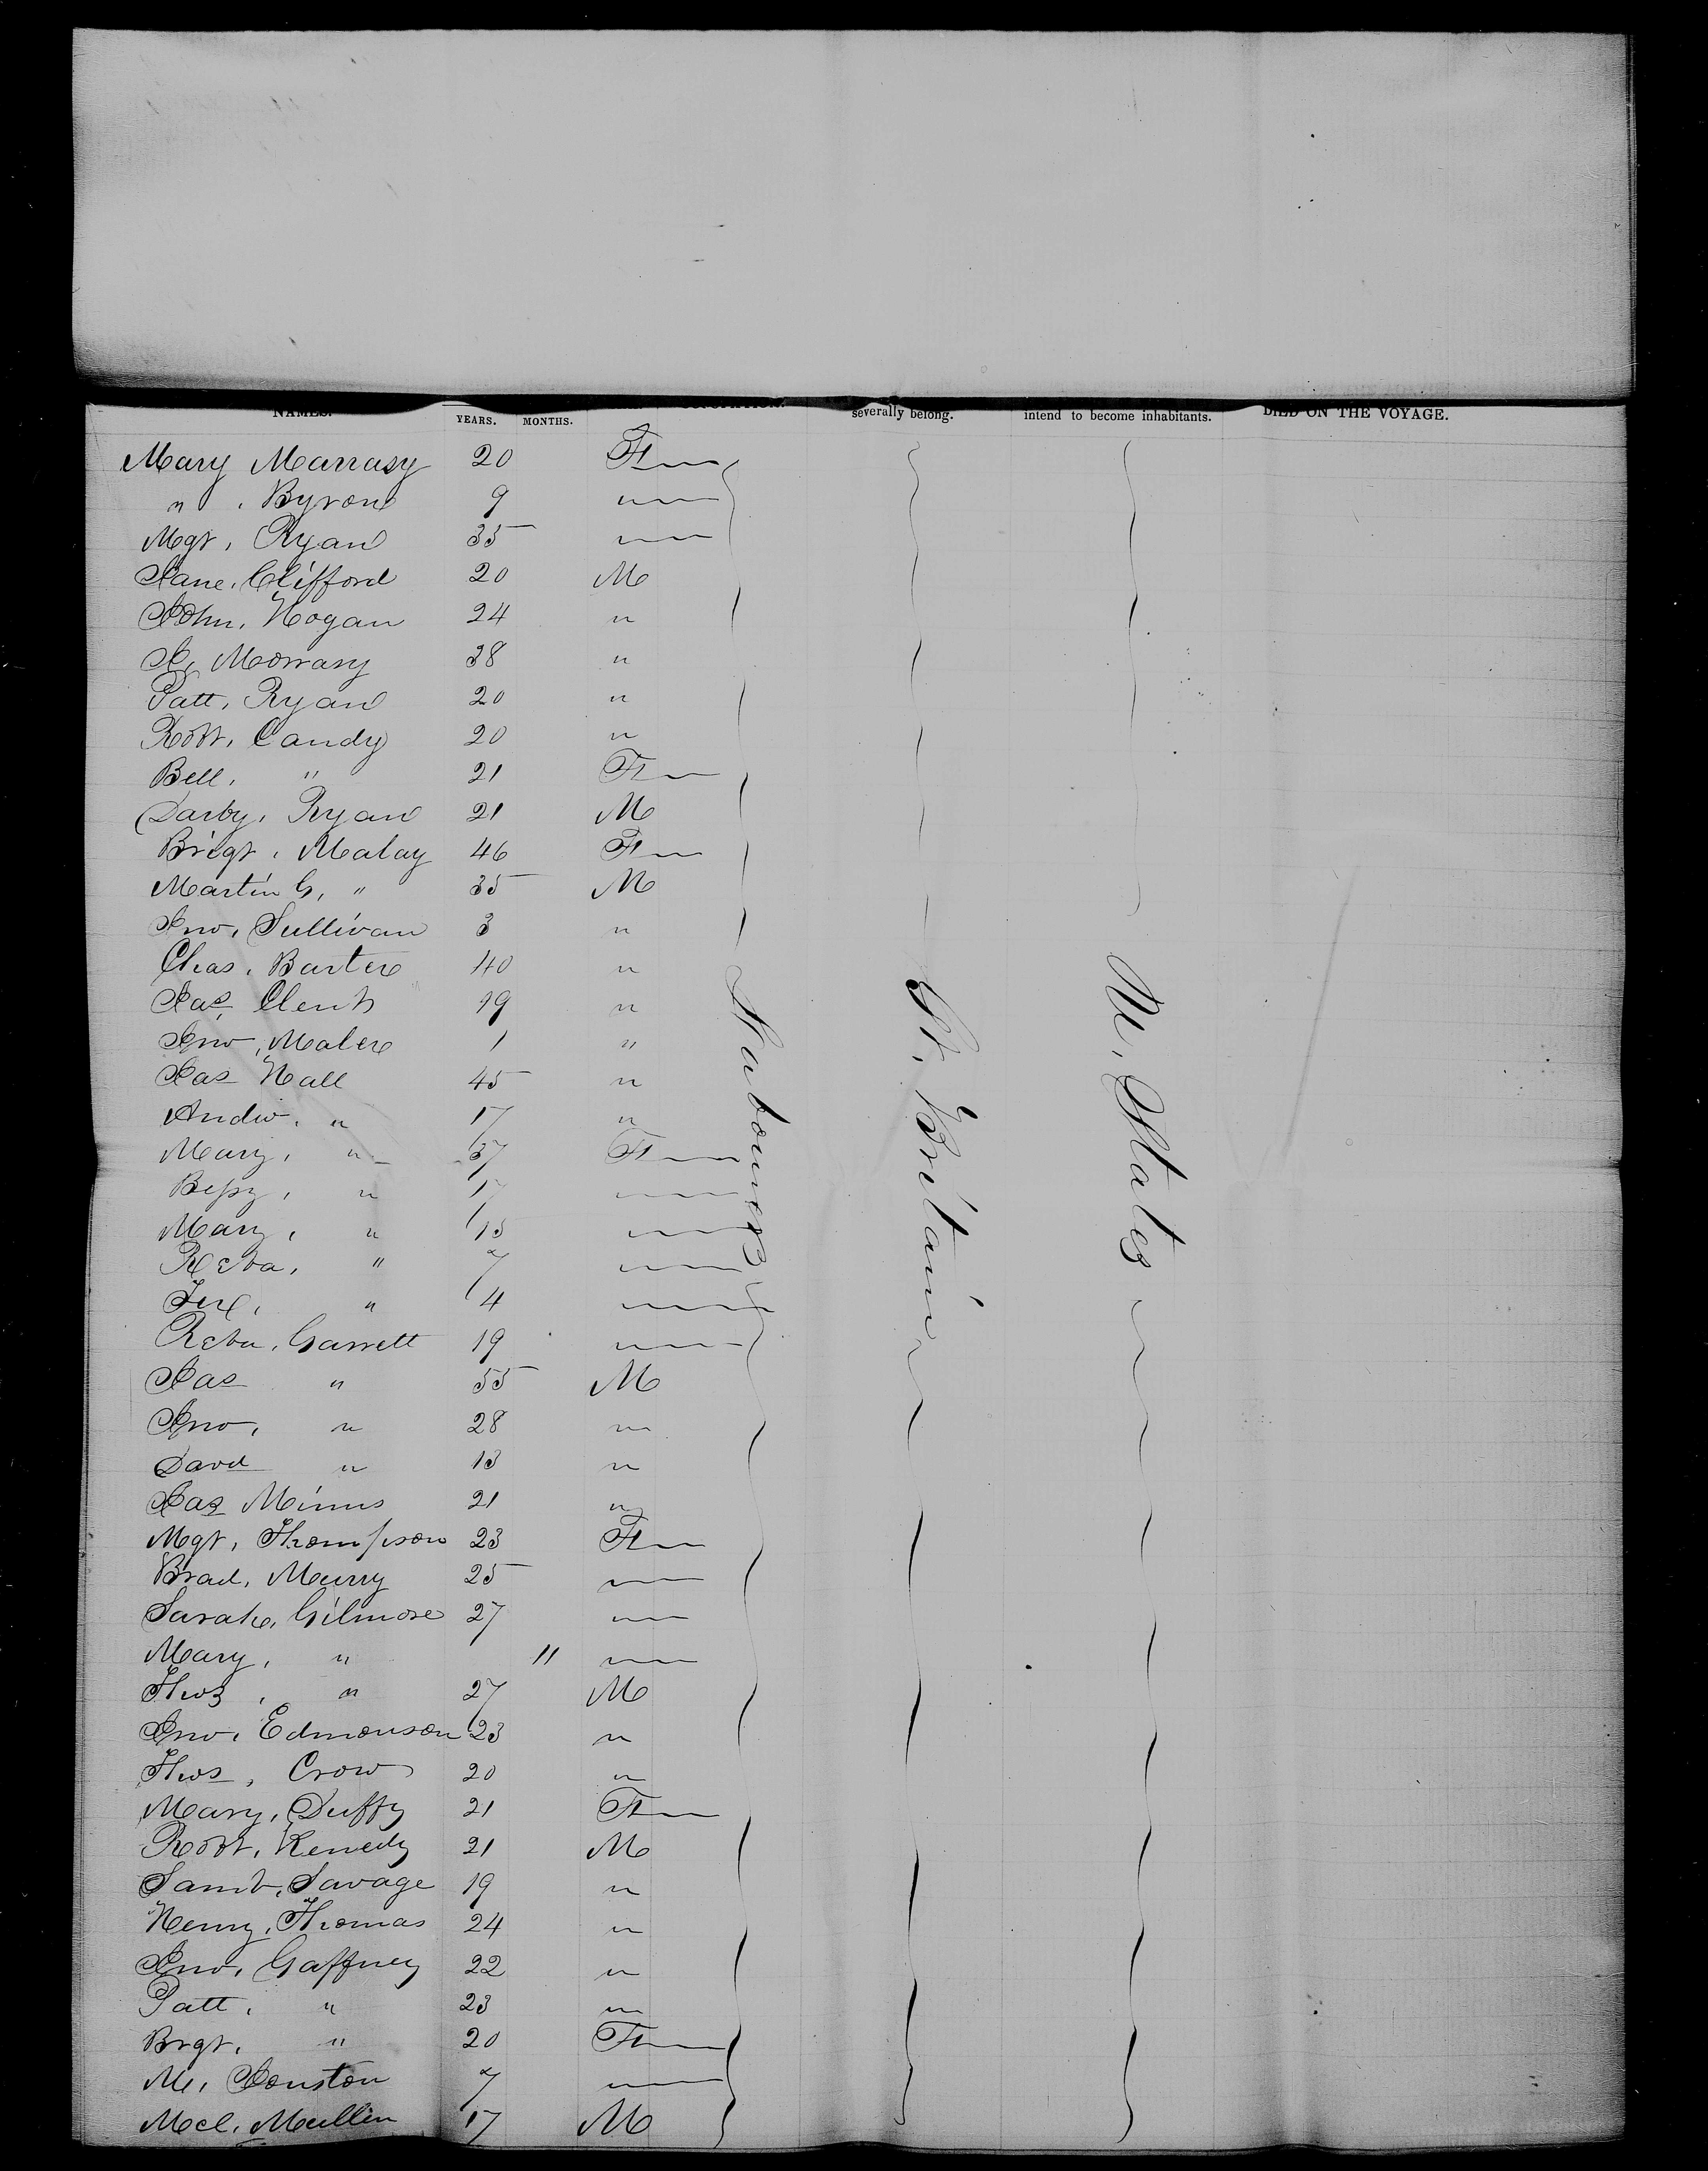 NAMES. YEARS. MONTHS. severally belong. intend to become inhabitants. DIED ON THE VOYAGE.
Mary Marrasy 20 F
" . Byrone 9 "
Mgt, Ryan 35 "
Jane, Clifford 20 M
John, Hogan 24 "
J, Morrasy 38 "
Patt, Ryan 20 "
Robt, Candy 20 "
Bell, " 21 F
Darby, Ryan 21 M
Brigt, Malay 46 F
Martin G, " 35 M
Jno, Sullivan 3 "
Chas, Barter 40 "
Jas, 19 "
Jno, Maler 1 "
Jas Hall 45 "
Andw, " 17 "
Mary, " 37 F
Bessy, " 17 "
Mary, " 15 "
Reba, " 7 "
" 4 "
Reba, Garrett 19 "
Jas " 55 M
Jno, " 28 "
Davd " 13 "
Jas Minus 21 "
Mgt, Thompson 23 F
Brad, Murry 25 "
Sarah, Gilmore 27 "
Mary, " 11 "
Thos, " 27 M
Jno, Edmonson 23 "
Thos, Crow 20 "
Mary, Duffy 21 F
Robt, Kenedy 21 M
Saml, Savage 19 "
Henry, Thomas 24 "
Jno, Gaffney 22 "
Patt, " 23 "
Brgt, " 20 F
M, Jonston 7 "
Mcl, Mullin 17 M
Gt. Britain
U. States